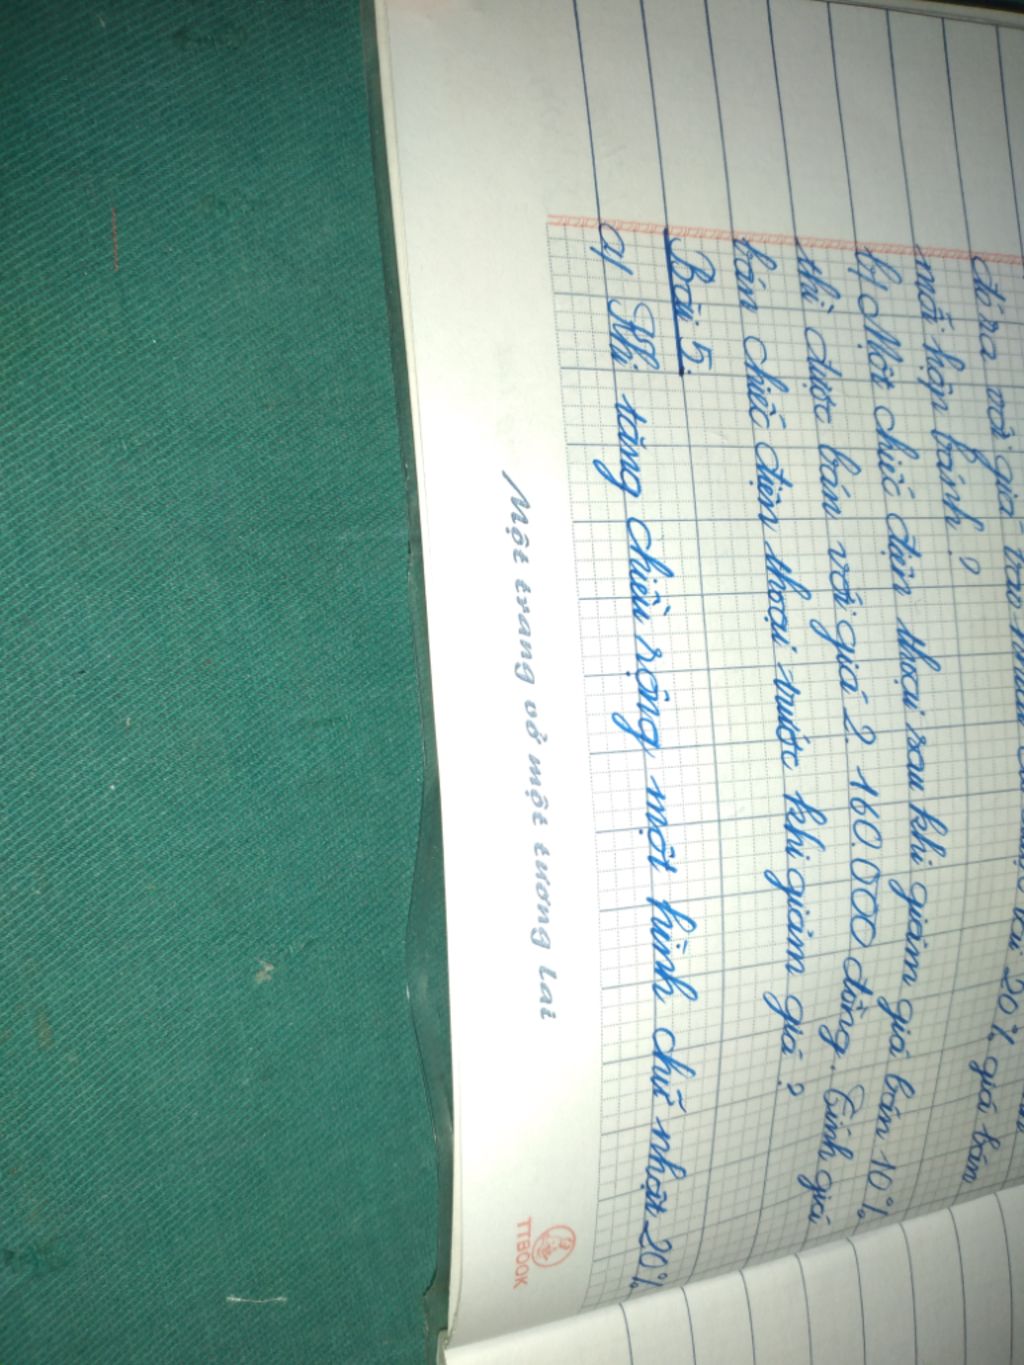 đó ra với giá 20% giá bán
mỗi hộp bánh?
b) Một chiếc điện thoại sau khi giảm giá bán 10%
thì được bán với giá 2.160.000 đồng. Tính giá
bán chiếc điện thoại trước khi giảm giá?
Bài 5.
a) Khi tăng chiều rộng một hình chữ nhật 20%
Một trang vở một tương lai
TTBOOK